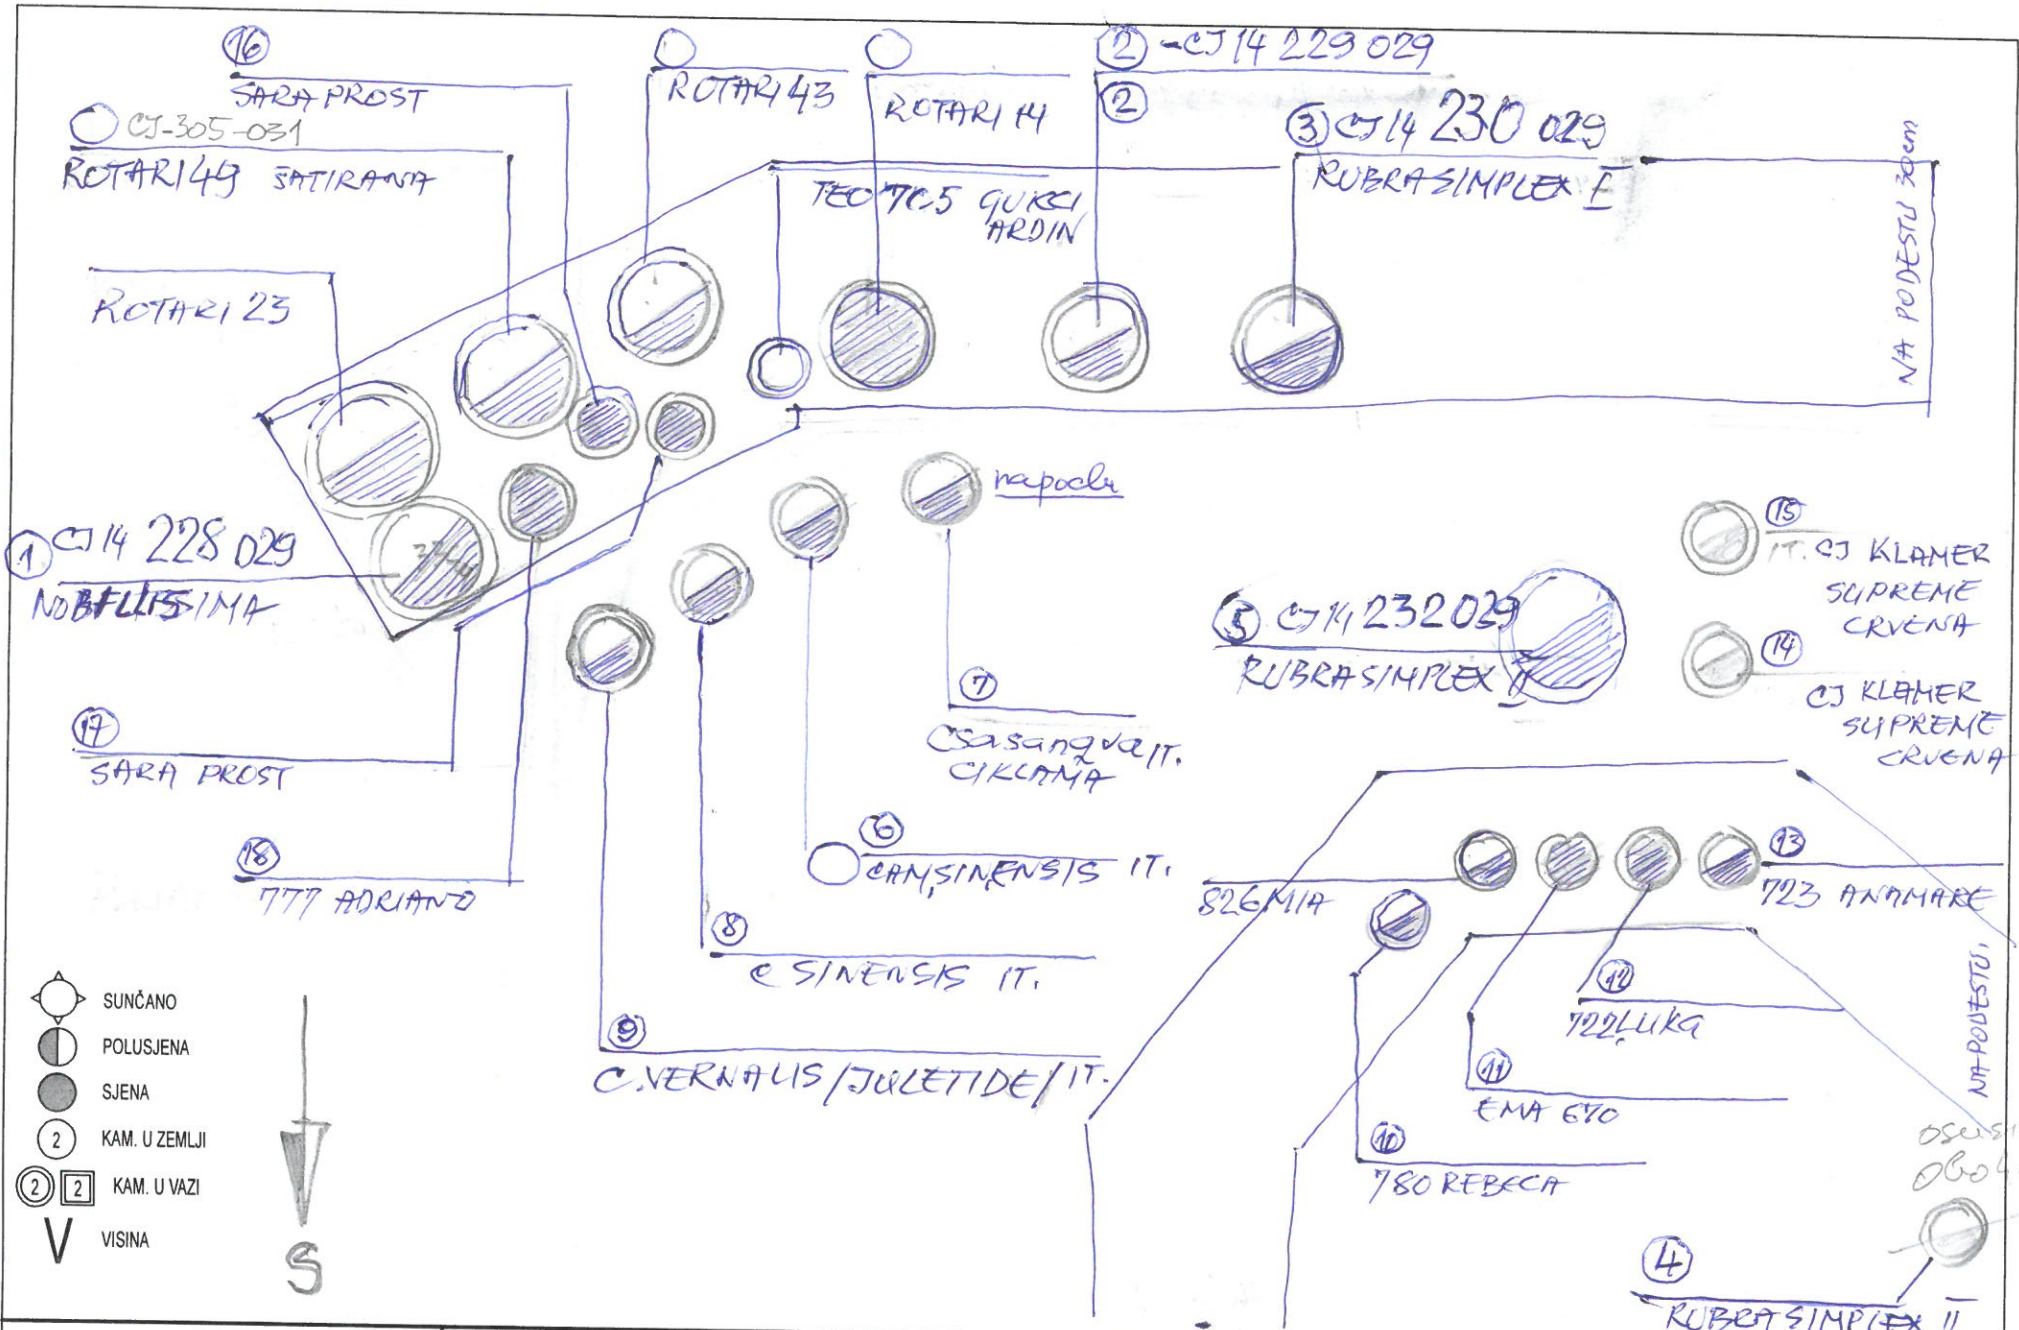 16
SARA PROST
CJ-305-031
ROTARI 49 ŠATIRANA
ROTARI 43
ROTARI 14
2 -CJ 14 229 029
2
3 CJ 14 230 029
RUBRA SIMPLEX I
NA PODESTU 30cm
ROTARI 23
1 CJ 14 228 029
NOBILISSIMA
napodu
15
IT. CJ KLAMER
SUPREME
CRVENA
14
CJ KLAMER
SUPREME
CRVENA
5 CJ 14 232 029
RUBRA SIMPLEX II
17
SARA PROST
7
CSasanqva IT.
CIKLAMA
18
777 ADRIANO
6
CAM,SINENSIS IT.
8
C SINENSIS IT.
9
C.VERNALIS /JULETIDE/ IT.
826 MIA
13
723 ANAMARE
12
722 LUKA
11
EMA 670
10
780 REBECA
NA PODESTU,
4
RUBRA SIMPLEX II
SUNČANO
POLUSJENA
SJENA
2 KAM. U ZEMLJI
2 2 KAM. U VAZI
V VISINA
S